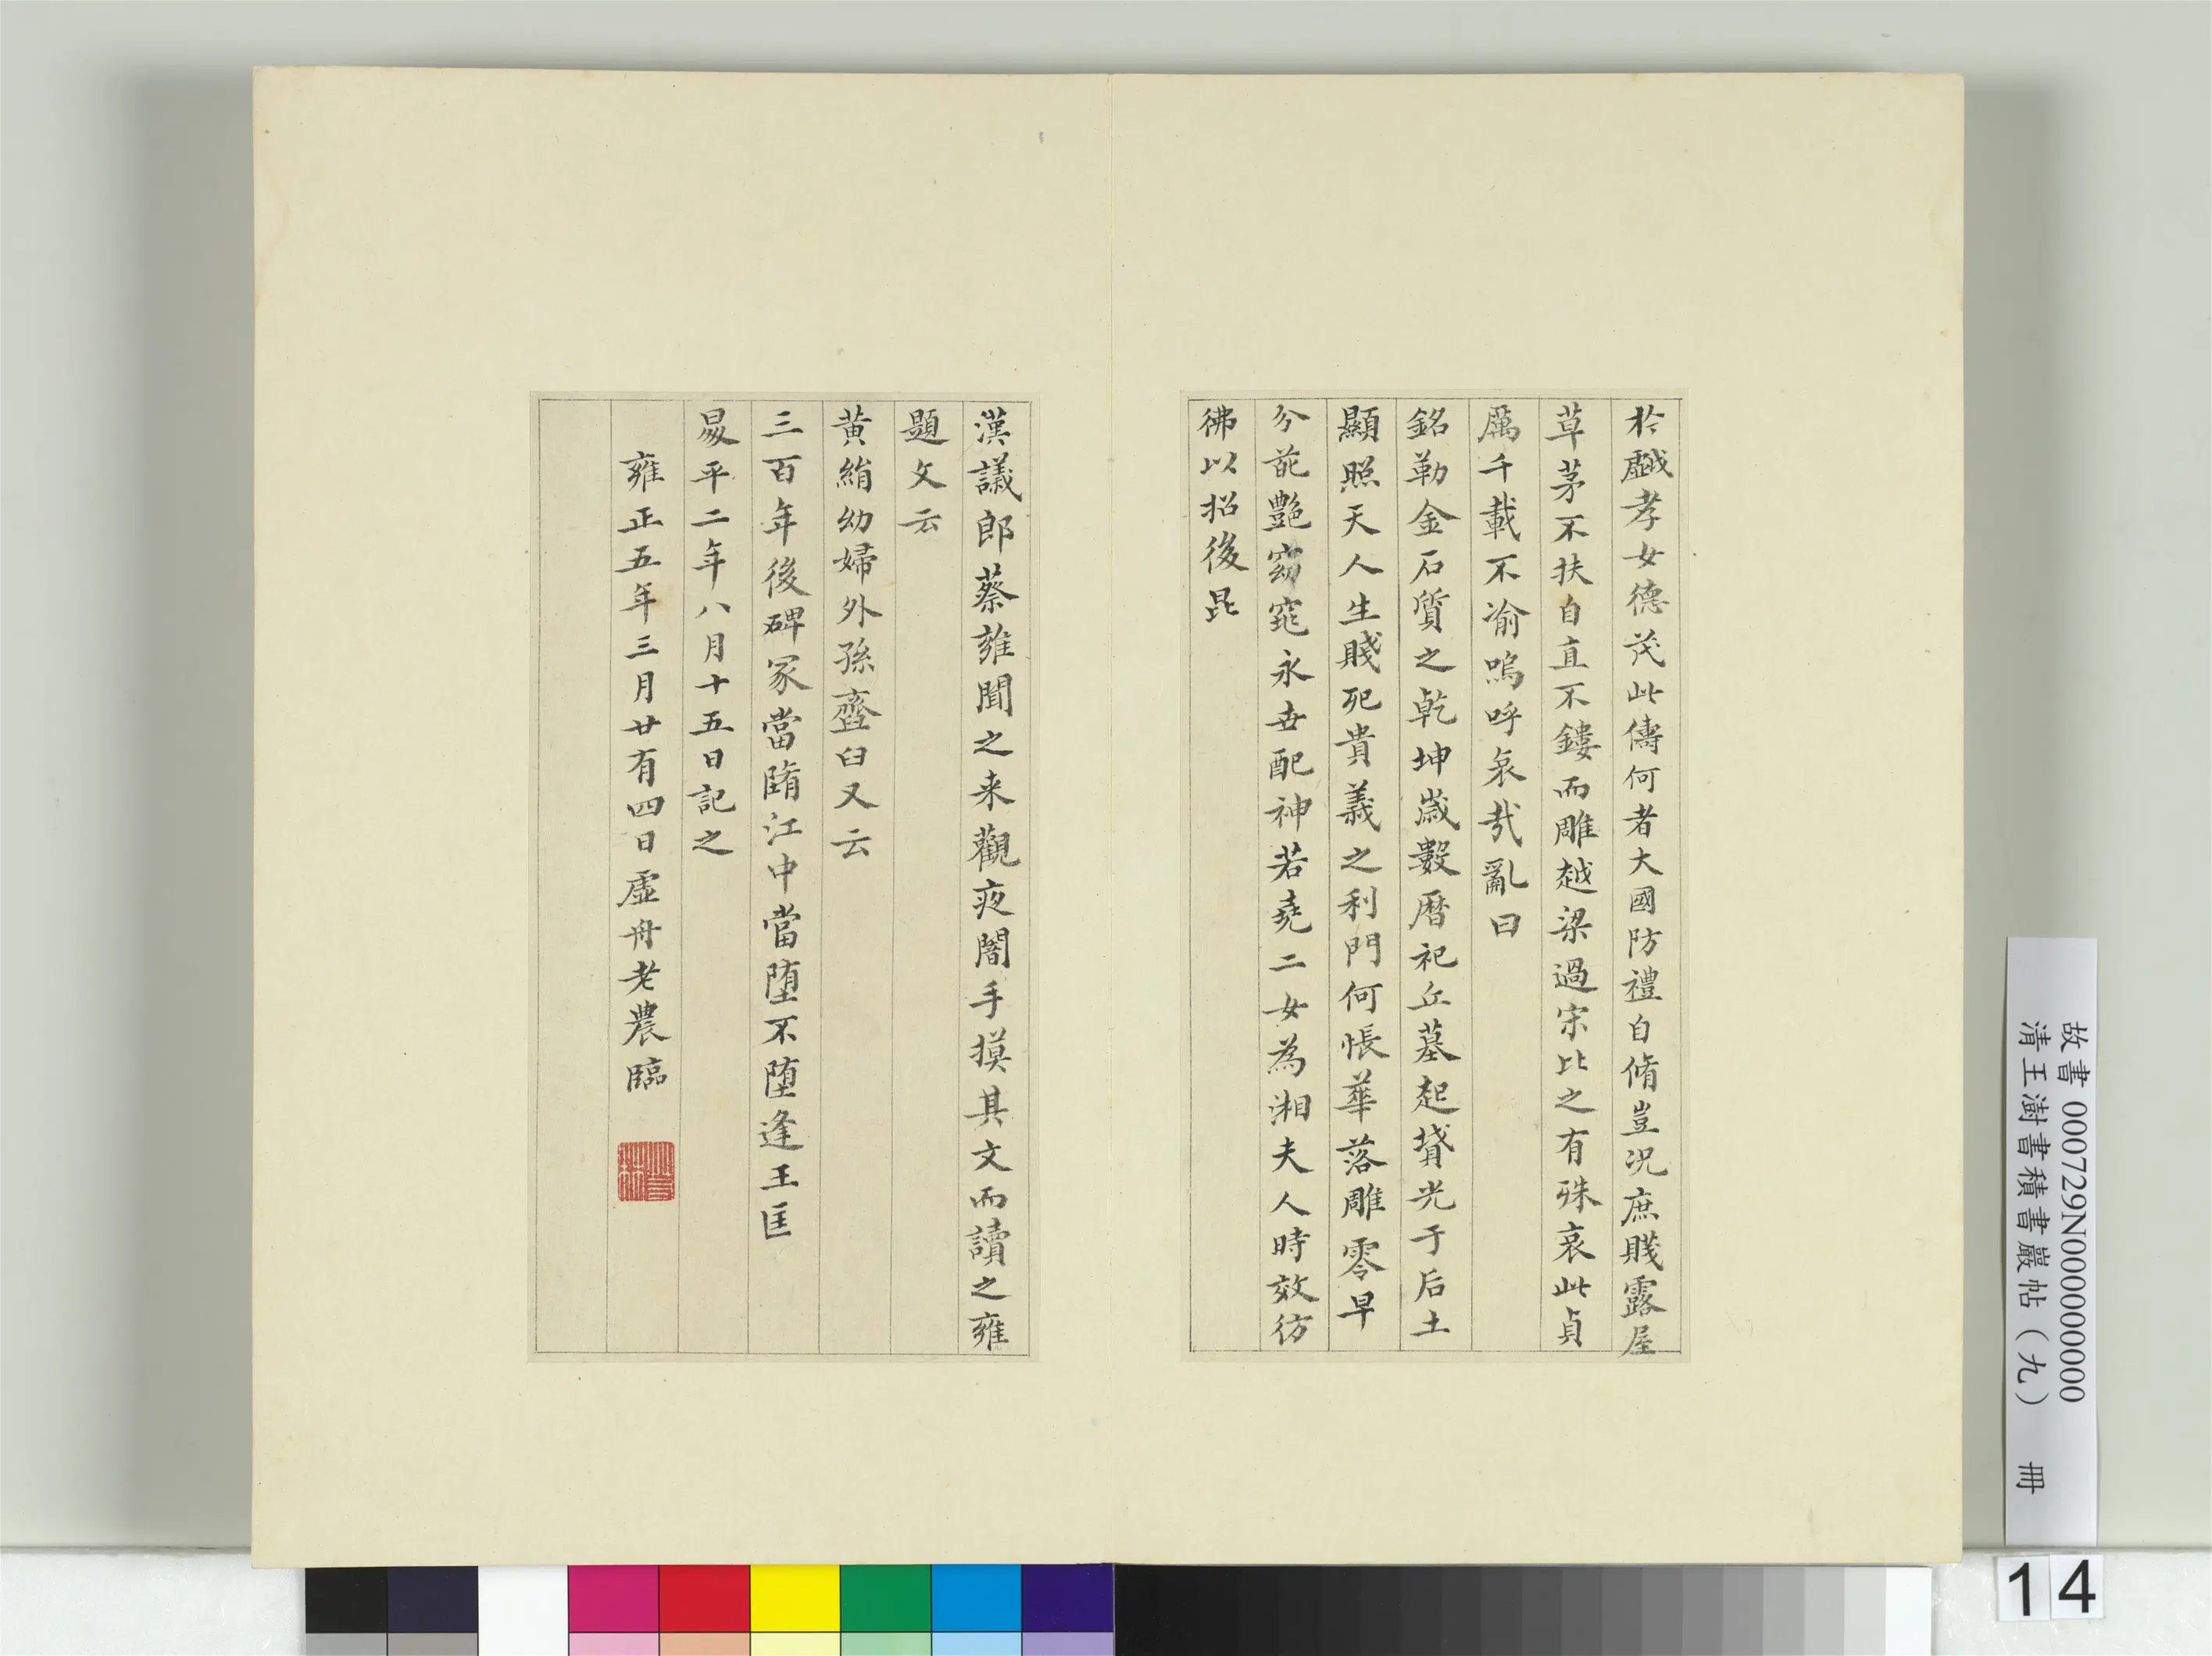 於戲孝女德茂此儔何者大國防禮自脩豈況庶賤露屋
草茅不扶自直不鏤而雕越梁過宋比之有殊哀此貞
厲千載不渝嗚呼哀哉亂曰
銘勒金石質之乾坤歲數曆祀丘墓起墳光于后土
顯照天人生賤死貴義之利門何悵華落雕零早
分葩艷窈窕永世配神若堯二女為湘夫人時效彷
彿以招後昆
漢議郎蔡雍聞之来觀夜闇手摸其文而讀之雍
題文云
黃絹幼婦外孫齏臼又云
三百年後碑冢當墮江中當墮不墮逢王匡
昇平二年八月十五日記之
雍正五年三月廿有四日虛舟老農臨
故書 000729N000000000
清王澍書積書巖帖（九） 冊
14